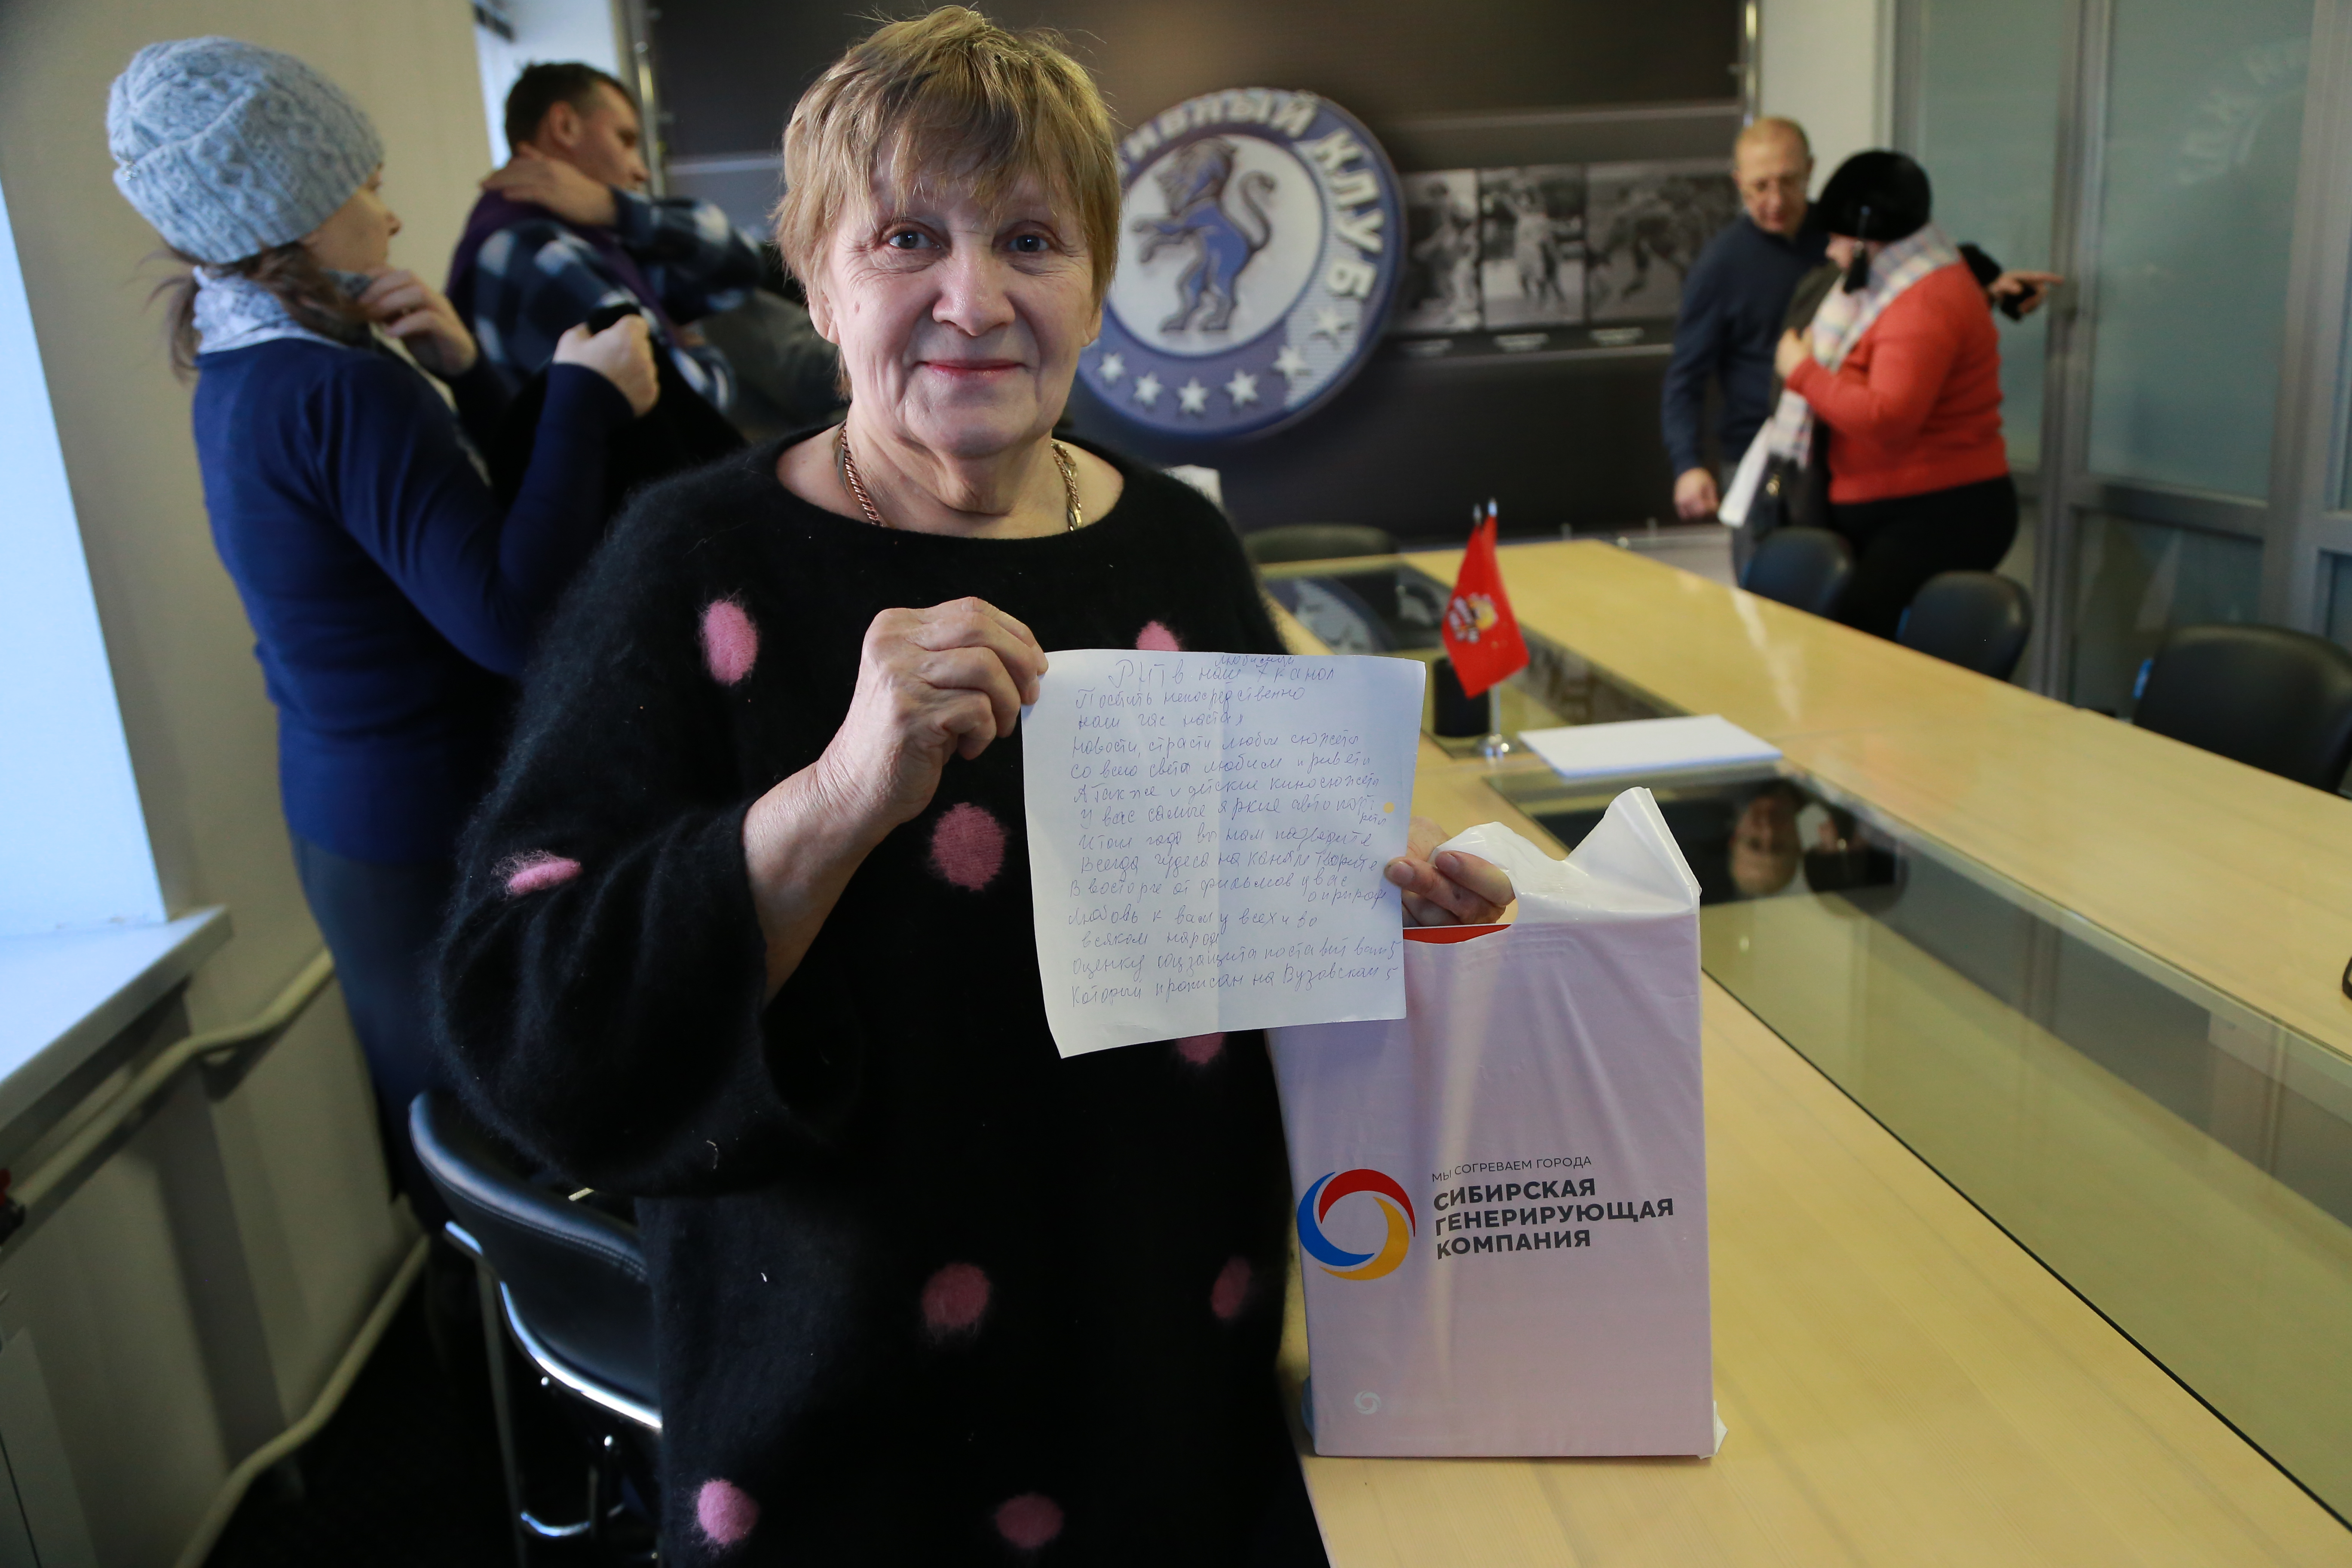 ИВНЫЙ КЛУБ
любимый
РНТ в наш канал
Посетить непосредственно
наш час настал
Новости, страсти любим сюжеты
со всего света любим приветы
А также и детские киносюжеты
У вас самые яркие автопорт
реты
вы нам подарите
Всегда чудеса на канале творите
В восторге от фильмов у вас
о природе
Любовь к вам у всех и во
всяком народе
Оценку соцзащита поставит вам 5
Который прописан на Вузовский 5
МЫ СОГРЕВАЕМ ГОРОДА
СИБИРСКАЯ
ГЕНЕРИРУЮЩАЯ
КОМПАНИЯ